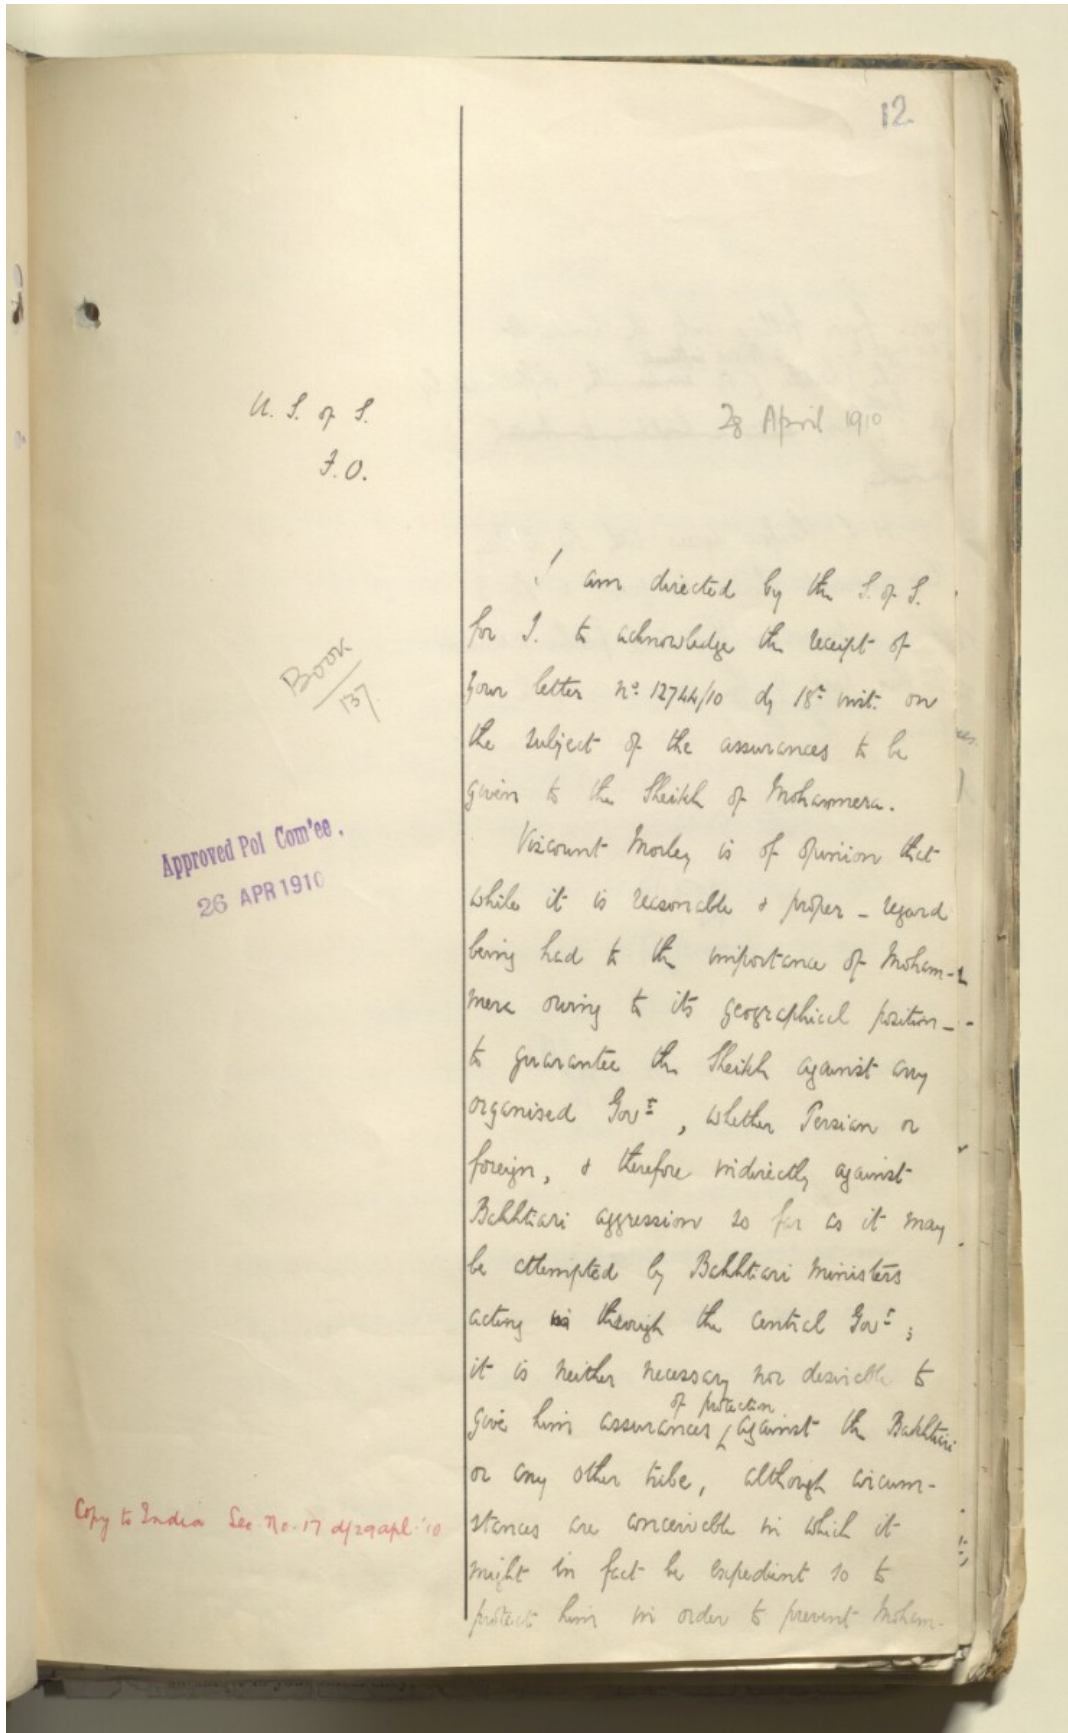 12
U. S. of S.
F.O.
28 April 1910
Book
137.
Approved Pol Com'ee.
26 APR 1910
Copy to India Sec. No. 17 d/29 apl. '10
I am directed by the S. of S.
for I. to acknowledge the receipt of
your letter No. 12744/10 d/ 18th inst. on
the subject of the assurances to be
given to the Sheikh of Mohammera.
Viscount Morley is of opinion that
while it is reasonable & proper – regard
being had to the importance of Moham-
mera owing to its geographical position –
to guarantee the Sheikh against any
organised Govt, whether Persian or
foreign, & therefore indirectly against
Bakhtiari aggression so far as it may
be attempted by Bakhtiari Ministers
acting through the central Govt;
it is neither necessary nor desirable to
of protection
give him assurances against the Bakhtiari
or any other tribe, although circum-
stances are conceivable in which it
might in fact be expedient so to
protect him in order to prevent Moham-